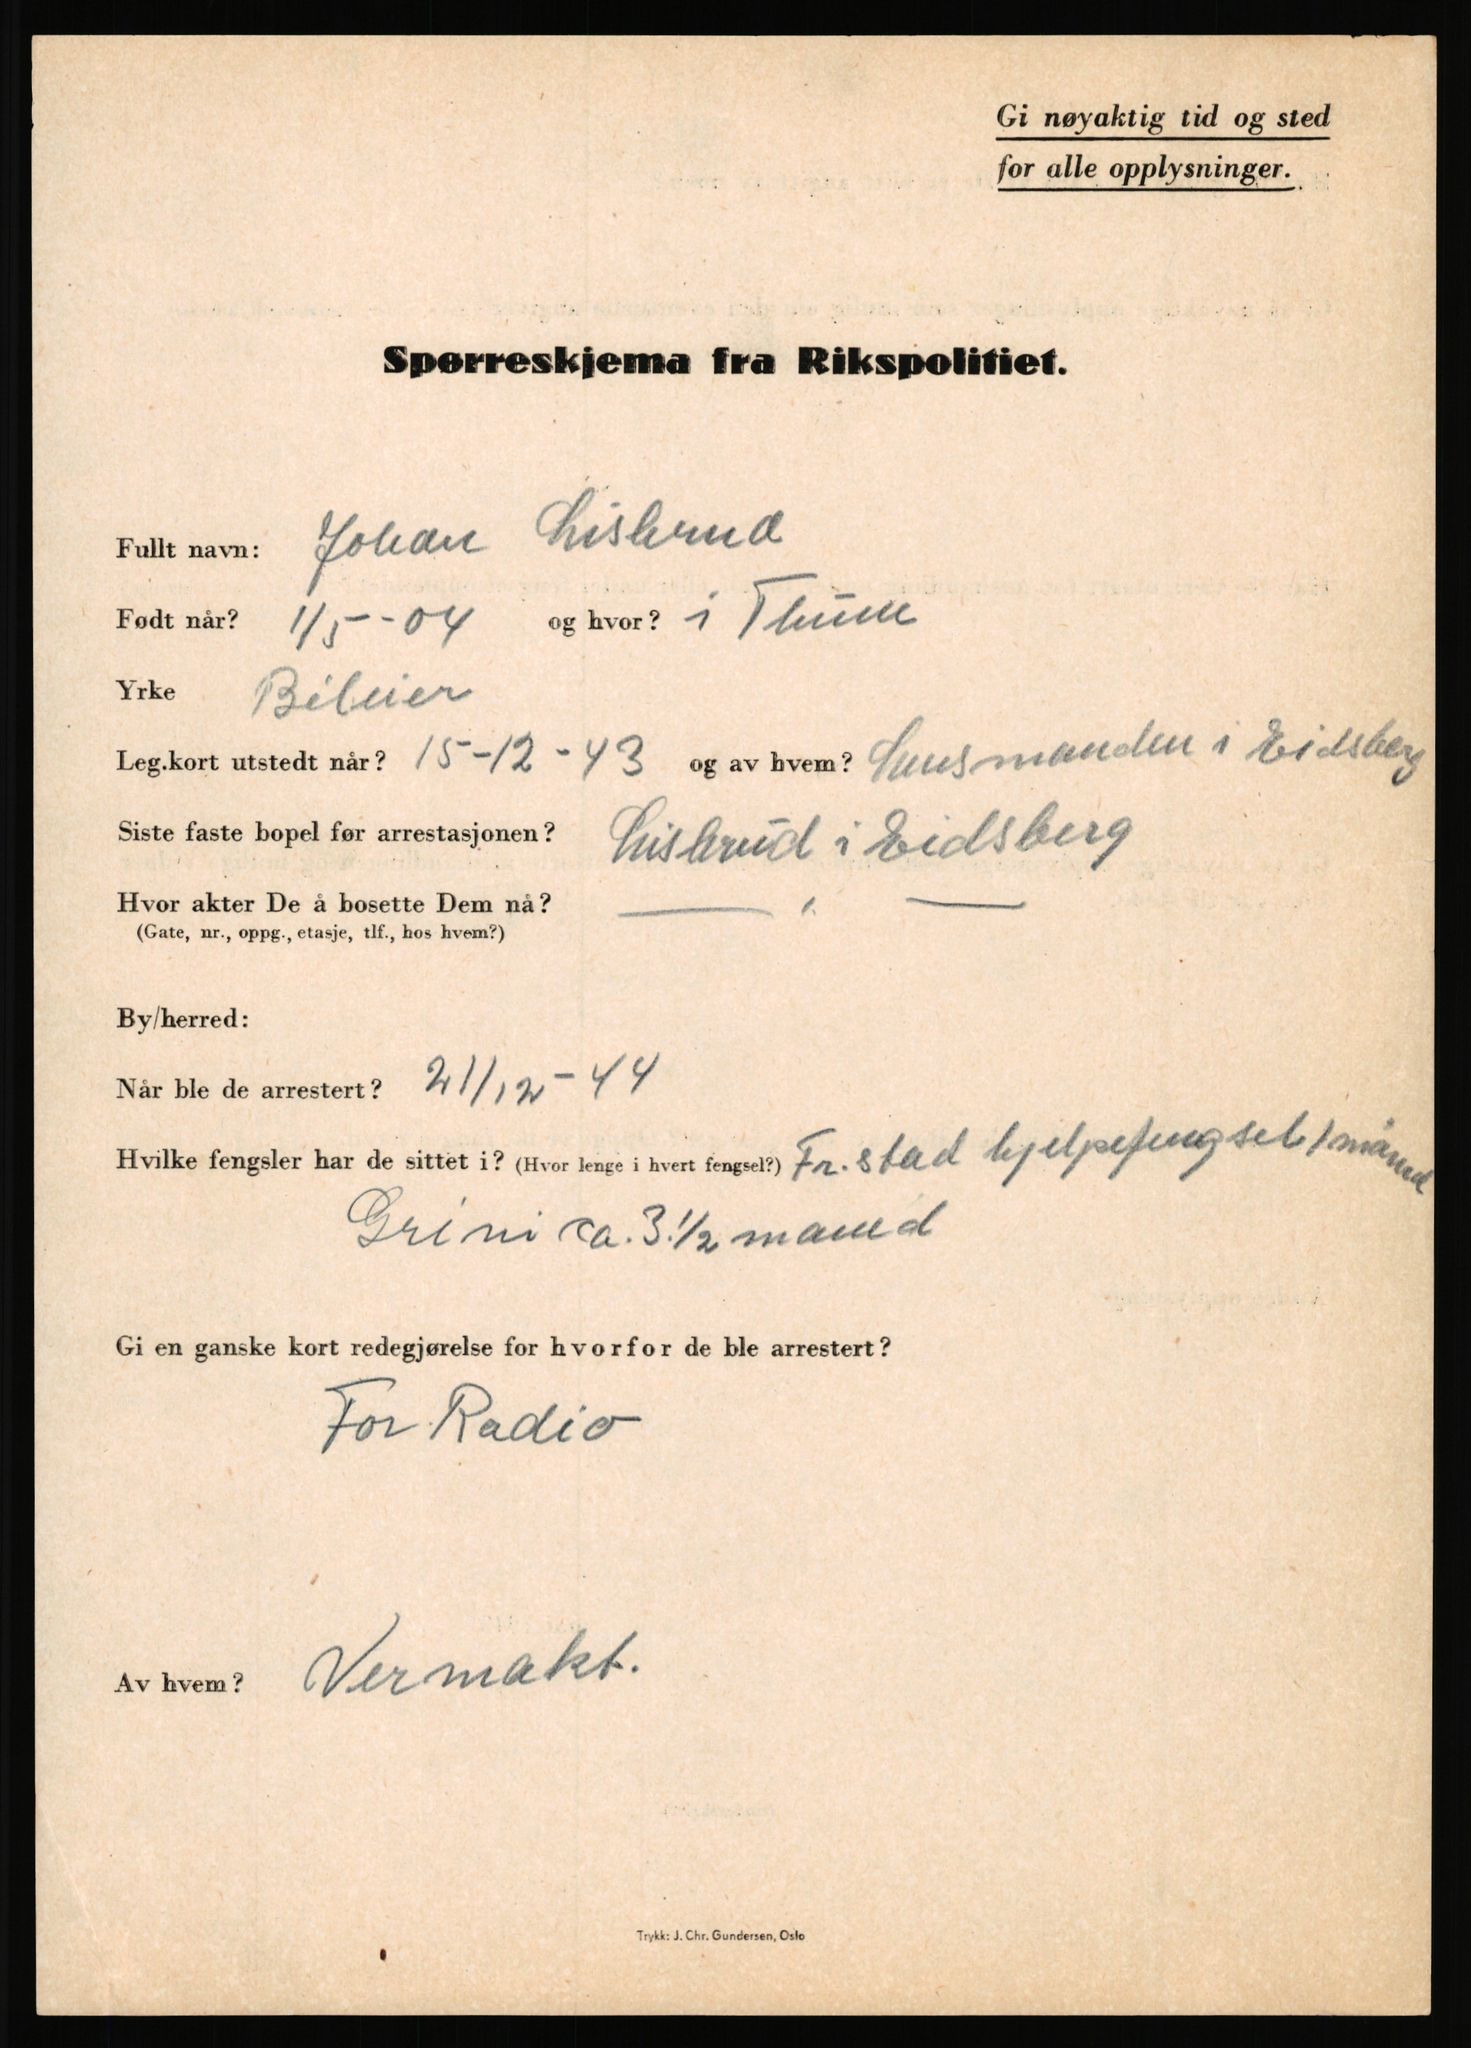 Gi nøyaktig tid og sted
for alle opplysninger.
Spørreskjema fra Rikspolitiet.
Fullt navn: Johan Lislerud
Født når? 1/5-04 og hvor? i Thune
Yrke Bileier
Leg.kort utstedt når? 15-12-43 og av hvem? Lensmanden i Eidsberg
Siste faste bopel før arrestasjonen? Lislerud i Eidsberg
Hvor akter De å bosette Dem nå? — " —
(Gate, nr., oppg., etasje, tlf., hos hvem?)
By/herred:
Når ble de arrestert? 21/12-44
Hvilke fengsler har de sittet i? (Hvor lenge i hvert fengsel?) Fr.stad hjelpefengsel 1 måned
Grini ca. 3.1/2 maned
Gi en ganske kort redegjørelse for hvorfor de ble arrestert?
For Radio
Av hvem? Vermakt.
Trykk: J. Chr. Gundersen, Oslo